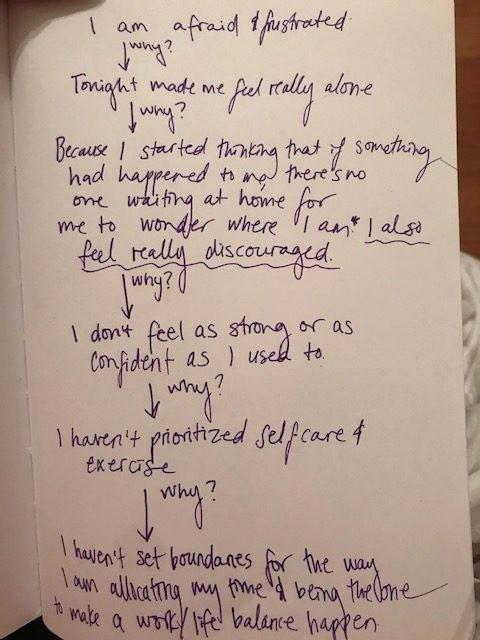 I am afraid & frustrated.
why?
Tonight made me feel really alone
why?
Because I started thinking that if something
had happened to me, there's no
one waiting at home for
me to wonder where I am.* I also
feel really discouraged.
why?
I don't feel as strong or as
confident as I used to.
why?
I haven't prioritized self care &
exercise
why?
I haven't set boundaries for the way
I am allocating my time & being the one
to make a work/life balance happen.